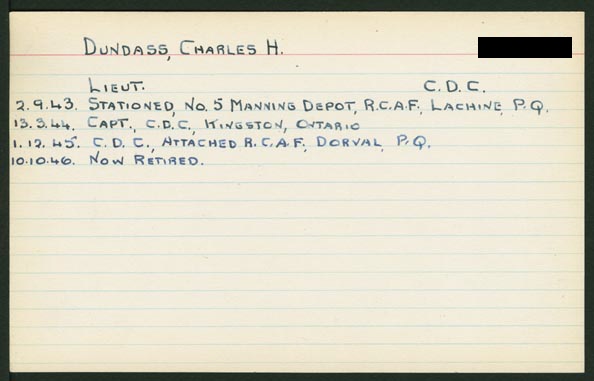 DUNDASS, CHARLES H.
LIEUT. C.D.C.
2.9.43. STATIONED, NO. 5 MANNING DEPOT, R.C.A.F, LACHINE, P.Q.
13.3.44. CAPT., C.D.C., KINGSTON, ONTARIO
1.12.45. C.D.C., ATTACHED R.C.A.F, DORVAL, P.Q.
10.10.46. NOW RETIRED.